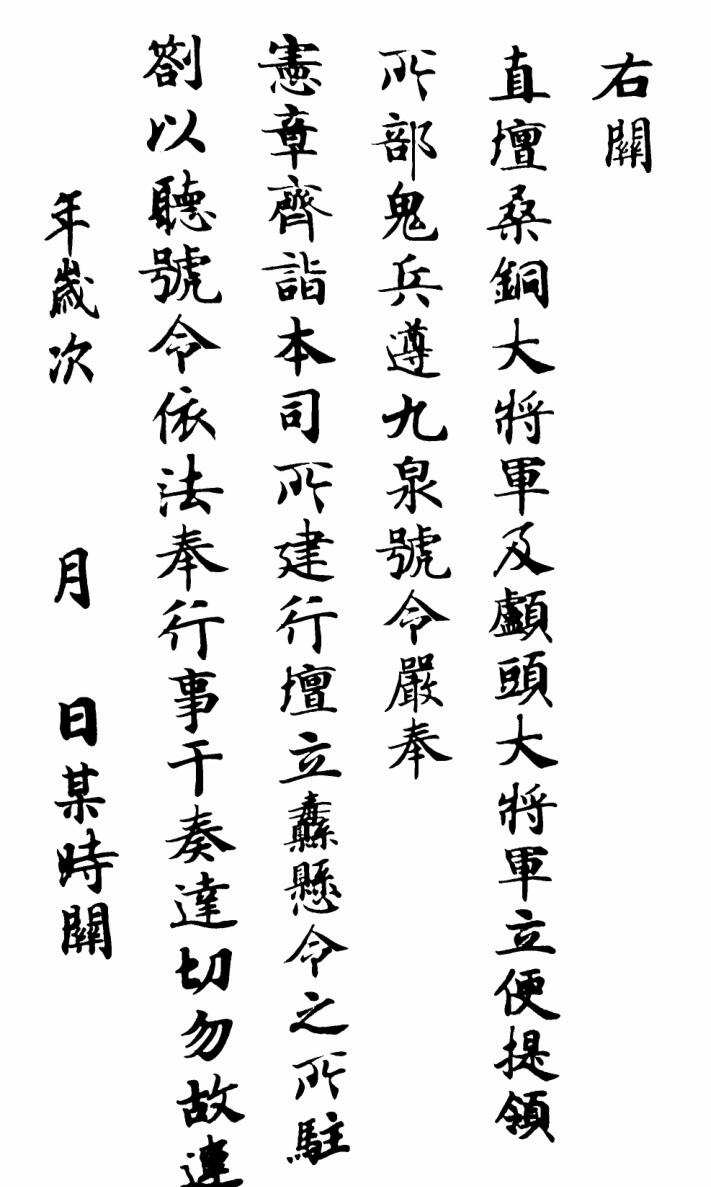 右關
直壇桑銅大將軍及顱頭大將軍立便提領
所部鬼兵遵九泉號令嚴奉
憲章齊詣本司所建行壇立纛懸令之所駐
劄以聽號令依法奉行事干奏達切勿故違
年歲次　月　日某時關